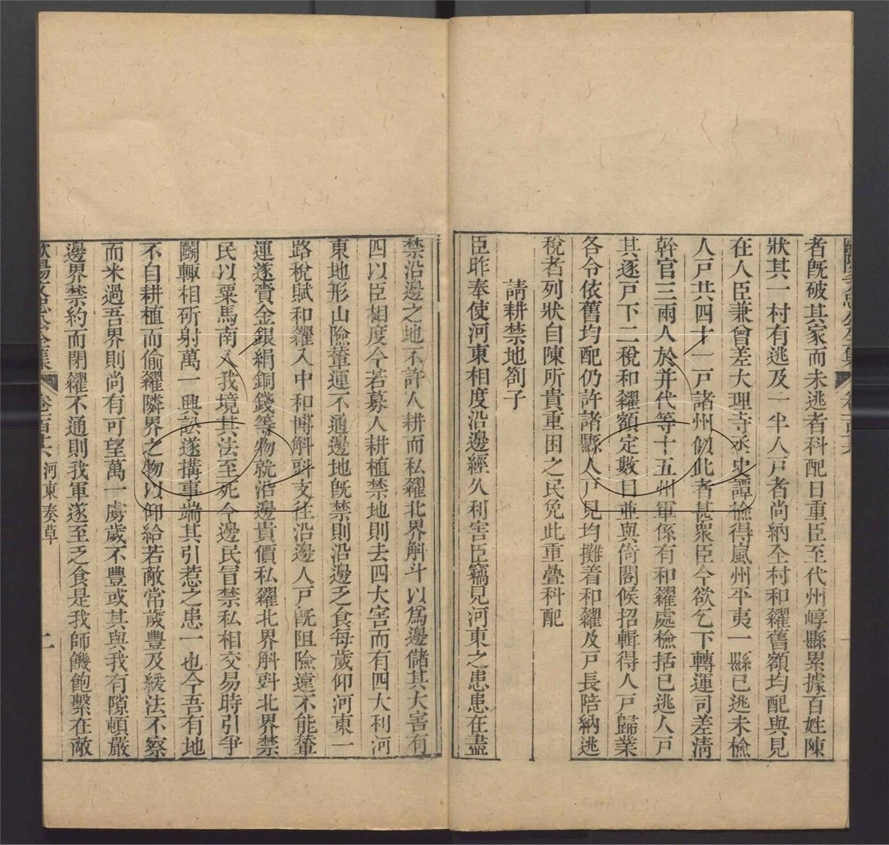 者既破其家而未逃者科配日重臣至代州崞縣累據百姓陳
狀其一村有逃及一半人戶者尚納全村和糴舊額均配與見
在人臣兼曾差大理寺丞史譚檢得嵐州平夷一縣已逃未檢
人戶共四十一戶諸州似此者甚衆臣今欲乞下轉運司差清
幹官三兩人於并代等十五州軍係有和糴處檢括已逃人戶
其逐戶下二稅和糴額定數目並與倚閣候招輯得人戶歸業
各令依舊均配仍許諸縣人戶見均攤着和糴及戶長陪納逃
稅者列狀自陳所貴重困之民免此重疊科配
請耕禁地劄子
臣昨奉使河東相度沿邊經久利害臣竊見河東之患患在盡
禁沿邊之地不許人耕而私糴北界斛斗以爲邊儲其大害有
四以臣相度今若募人耕植禁地則去四大害而有四大利河
東地形山險輦運不通邊地既禁則沿邊乏食每歲仰河東一
路稅賦和糴入中和博斛㪷支往沿邊人戶既阻險遠不能輦
運遂賫金銀絹銅錢等物就沿邊貴價私糴北界斛㪷北界禁
民以粟馬南入我境其法至死今邊民冒禁私相交易時引爭
鬬輒相斫射萬一興訟遂搆事端其引惹之患一也今吾有地
不自耕植而偷糴隣界之物以仰給若敵常歲豐及緩法不察
而米過吾界則尚有可望萬一虜歲不豐或其與我有隙頓嚴
邊界禁約而閉糴不通則我軍遂至乏食是我師饑飽繫在敵
歐陽文忠公全集 卷一百十六 河東奏草 二